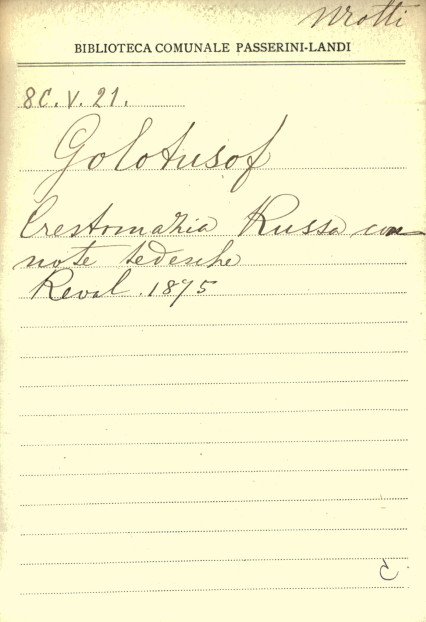 BIBLIOTECA COMUNALE PASSERINI-LANDI
8C.V.21.
Golotusof
Crestomazia Russa con
note tedesche
Reval. 1875
C